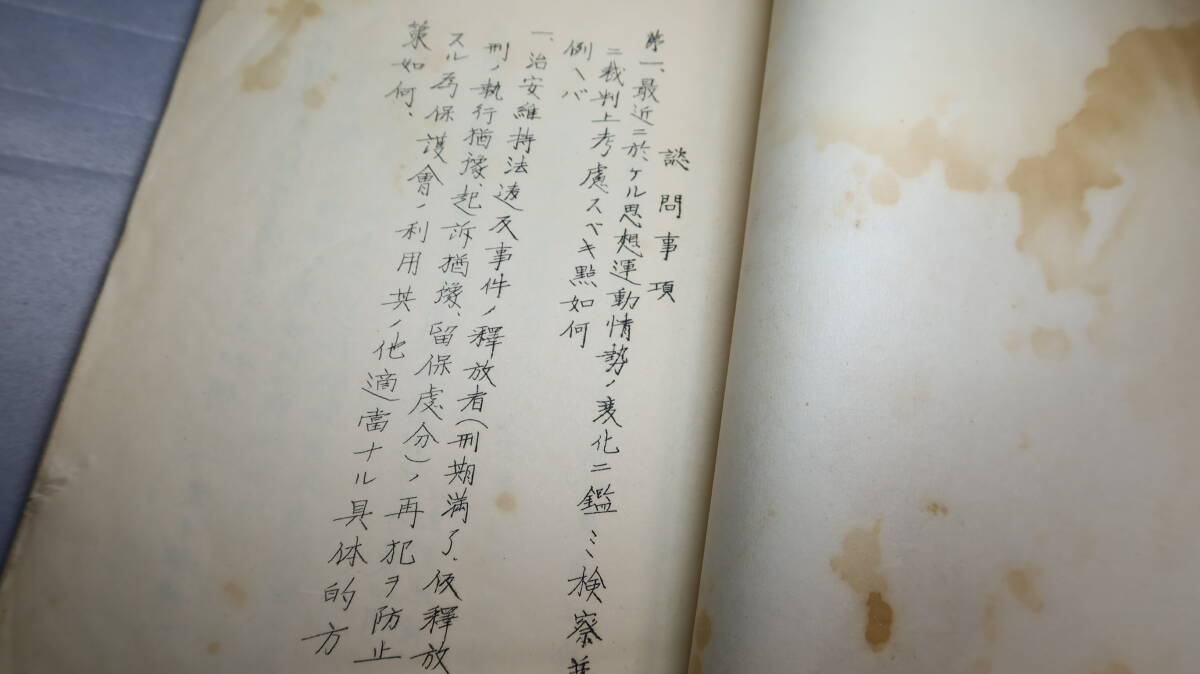 諮問事項
第一、最近ニ於ケル思想運動情勢ノ変化ニ鑑ミ検察並
ニ裁判上考慮スベキ點如何
例ヘバ
一、治安維持法違反事件ノ釋放者(刑期満了、仮釋放
刑ノ執行猶豫、起訴猶豫、留保處分)ノ再犯ヲ防止
スル為保護會ノ利用其ノ他適當ナル具体的方
策如何、